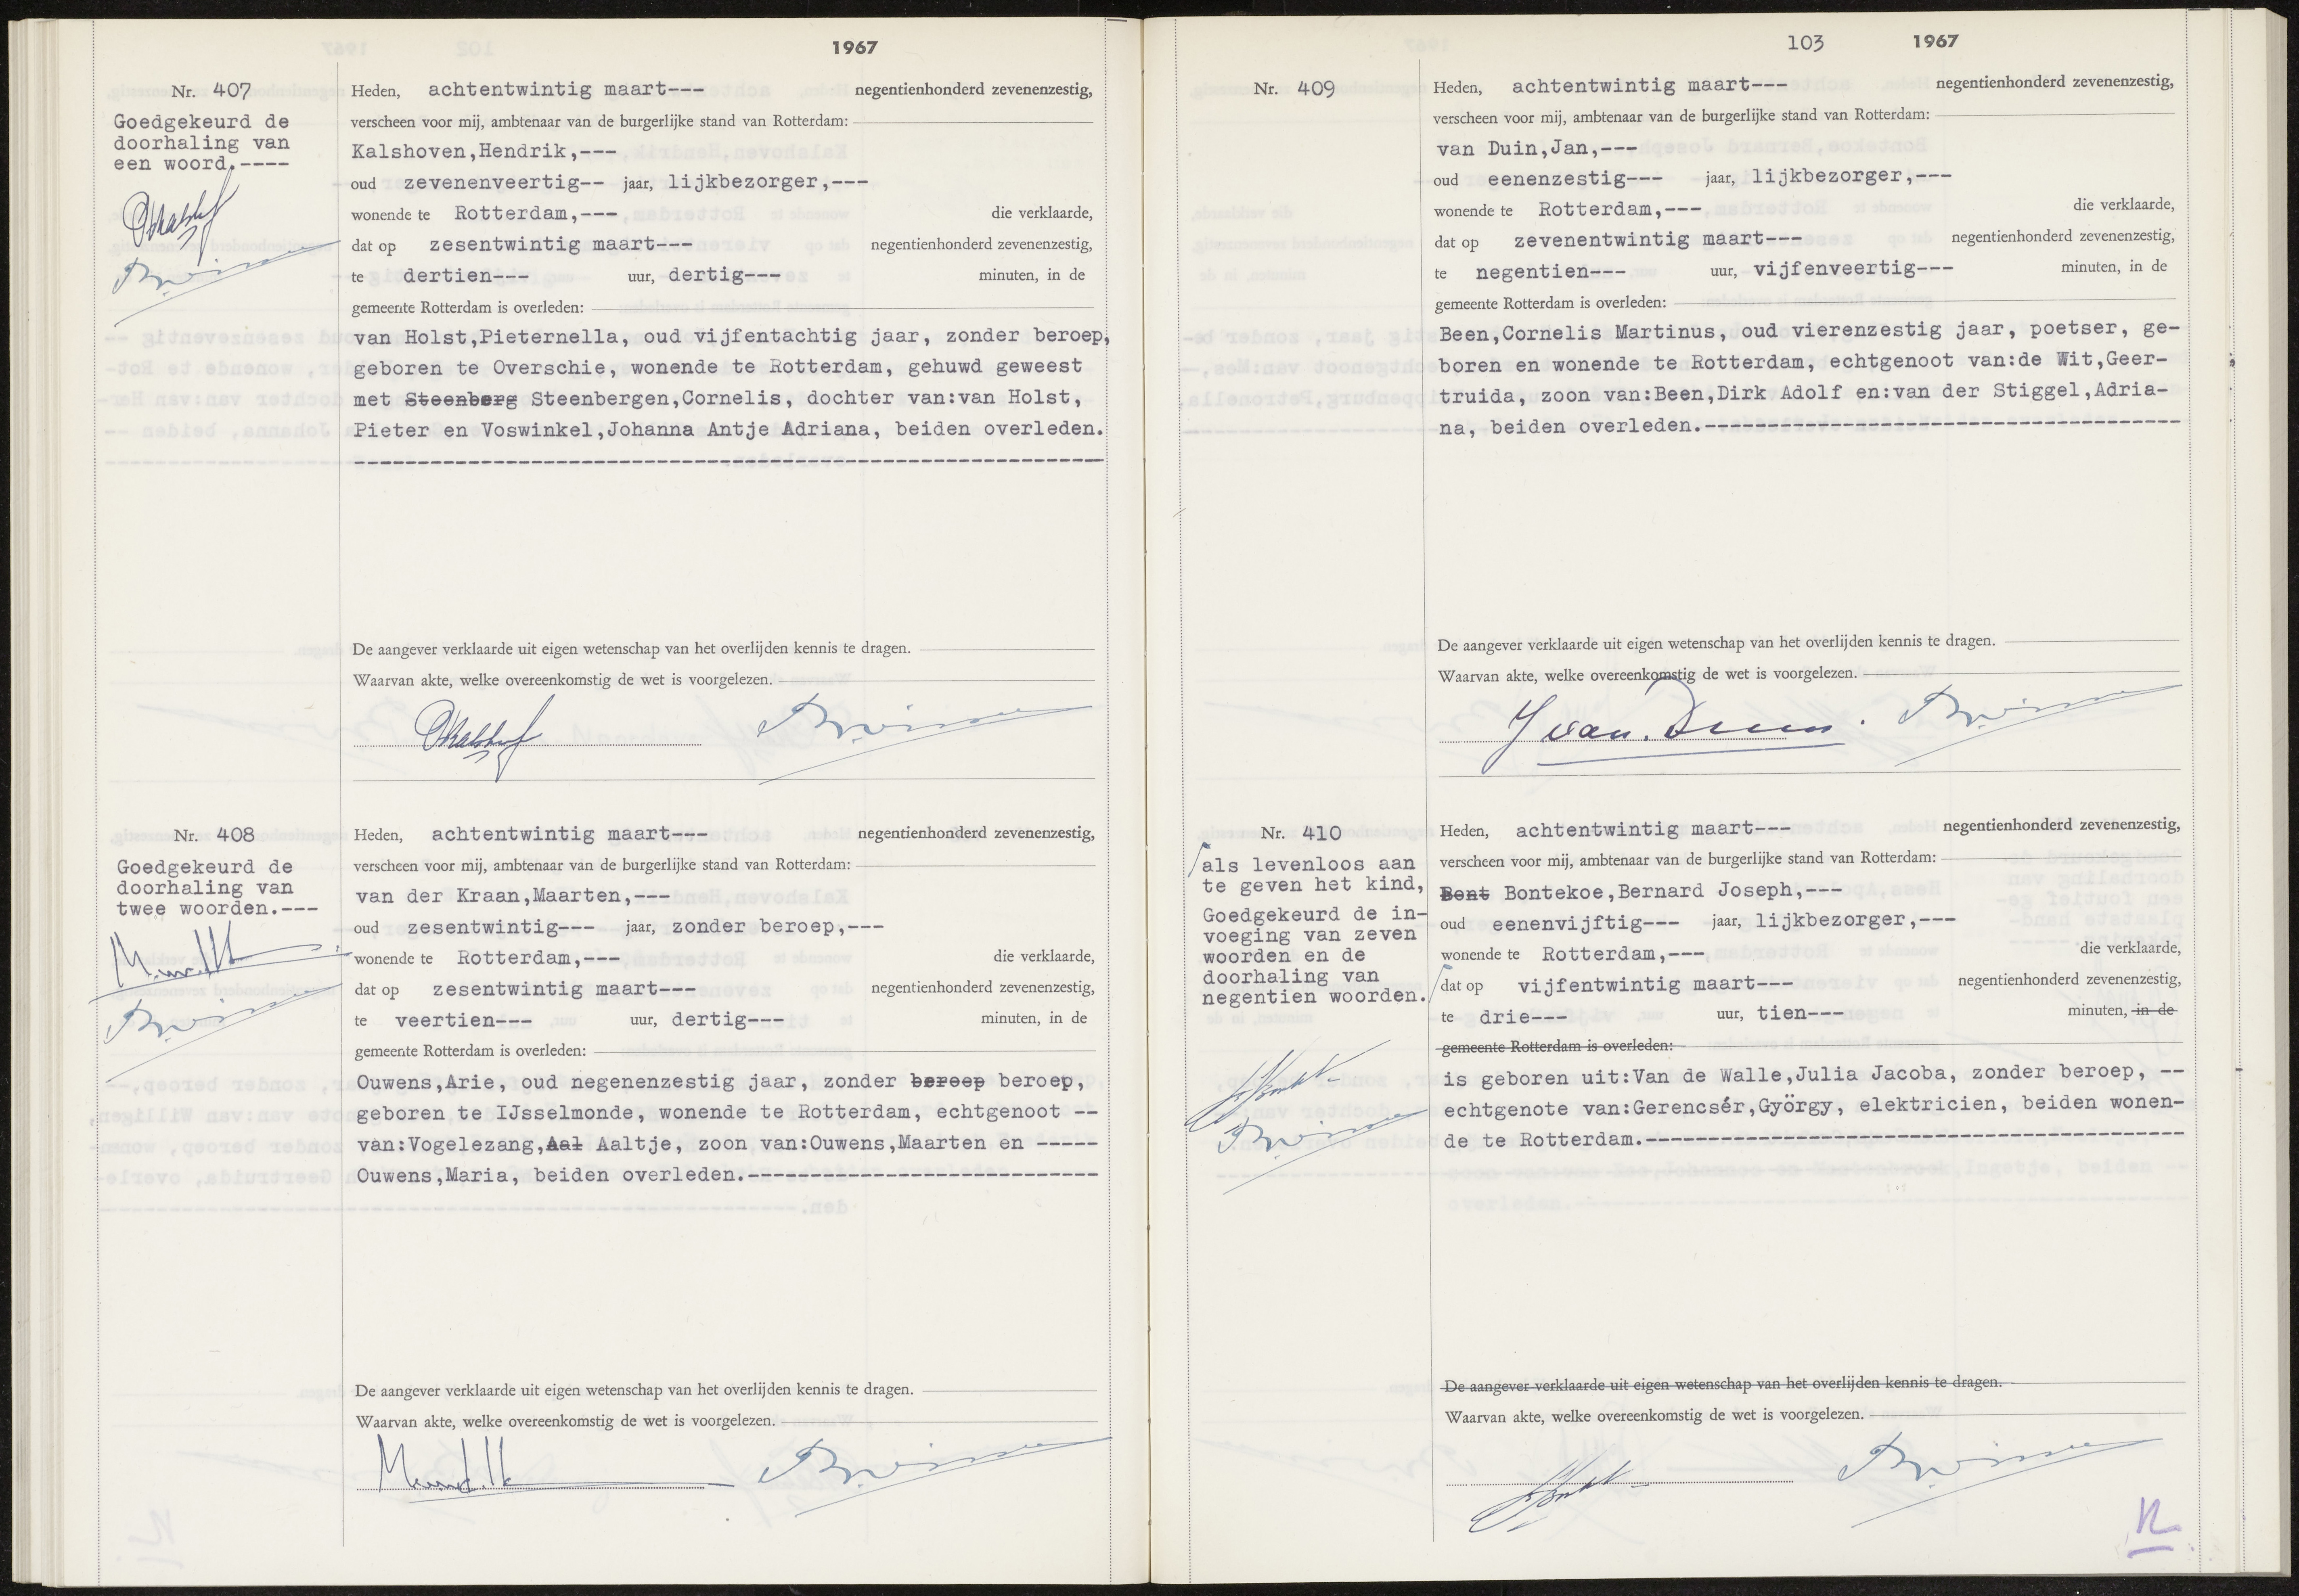 1967
Nr. 407
Goedgekeurd de
doorhaling van
een woord.----
Heden, achtentwintig maart--- negentienhonderd zevenenzestig,
verscheen voor mij, ambtenaar van de burgerlijke stand van Rotterdam:
Kalshoven,Hendrik,---
oud zevenenveertig-- jaar, lijkbezorger,---
wonende te Rotterdam,--- die verklaarde,
dat op zesentwintig maart--- negentienhonderd zevenenzestig,
te dertien--- uur, dertig--- minuten, in de
gemeente Rotterdam is overleden:
van Holst,Pieternella, oud vijfentachtig jaar, zonder beroep,
geboren te Overschie, wonende te Rotterdam, gehuwd geweest
met Steenberg Steenbergen,Cornelis, dochter van:van Holst,
Pieter en Voswinkel,Johanna Antje Adriana, beiden overleden.
De aangever verklaarde uit eigen wetenschap van het overlijden kennis te dragen.
Waarvan akte, welke overeenkomstig de wet is voorgelezen.
Nr. 408
Goedgekeurd de
doorhaling van
twee woorden.---
Heden, achtentwintig maart--- negentienhonderd zevenenzestig,
verscheen voor mij, ambtenaar van de burgerlijke stand van Rotterdam:
van der Kraan,Maarten,---
oud zesentwintig--- jaar, zonder beroep,---
wonende te Rotterdam,--- die verklaarde,
dat op zesentwintig maart--- negentienhonderd zevenenzestig,
te veertien--- uur, dertig--- minuten, in de
gemeente Rotterdam is overleden:
Ouwens,Arie, oud negenenzestig jaar, zonder beroep beroep,
geboren te IJsselmonde, wonende te Rotterdam, echtgenoot --
van:Vogelezang,Aal Aaltje, zoon van:Ouwens,Maarten en -----
Ouwens,Maria, beiden overleden.----------------------------
De aangever verklaarde uit eigen wetenschap van het overlijden kennis te dragen.
Waarvan akte, welke overeenkomstig de wet is voorgelezen.
103 1967
Nr. 409
Heden, achtentwintig maart--- negentienhonderd zevenenzestig,
verscheen voor mij, ambtenaar van de burgerlijke stand van Rotterdam:
van Duin,Jan,---
oud eenenzestig--- jaar, lijkbezorger,---
wonende te Rotterdam,--- die verklaarde,
dat op zevenentwintig maart--- negentienhonderd zevenenzestig,
te negentien--- uur, vijfenveertig--- minuten, in de
gemeente Rotterdam is overleden:
Been,Cornelis Martinus, oud vierenzestig jaar, poetser, ge-
boren en wonende te Rotterdam, echtgenoot van:de Wit,Geer-
truida, zoon van:Been,Dirk Adolf en:van der Stiggel,Adria-
na, beiden overleden.--------------------------------------
De aangever verklaarde uit eigen wetenschap van het overlijden kennis te dragen.
Waarvan akte, welke overeenkomstig de wet is voorgelezen.
J van Duin.
Nr. 410
als levenloos aan
te geven het kind,
Goedgekeurd de in-
voeging van zeven
woorden en de
doorhaling van
negentien woorden.
Heden, achtentwintig maart--- negentienhonderd zevenenzestig,
verscheen voor mij, ambtenaar van de burgerlijke stand van Rotterdam:
Bent Bontekoe,Bernard Joseph,---
oud eenenvijftig--- jaar, lijkbezorger,---
wonende te Rotterdam,--- die verklaarde,
dat op vijfentwintig maart--- negentienhonderd zevenenzestig,
te drie--- uur, tien--- minuten, in de
gemeente Rotterdam is overleden:
is geboren uit:Van de Walle,Julia Jacoba, zonder beroep, --
echtgenote van:Gerencsér,György, elektricien, beiden wonen-
de te Rotterdam.-------------------------------------------
De aangever verklaarde uit eigen wetenschap van het overlijden kennis te dragen.
Waarvan akte, welke overeenkomstig de wet is voorgelezen.